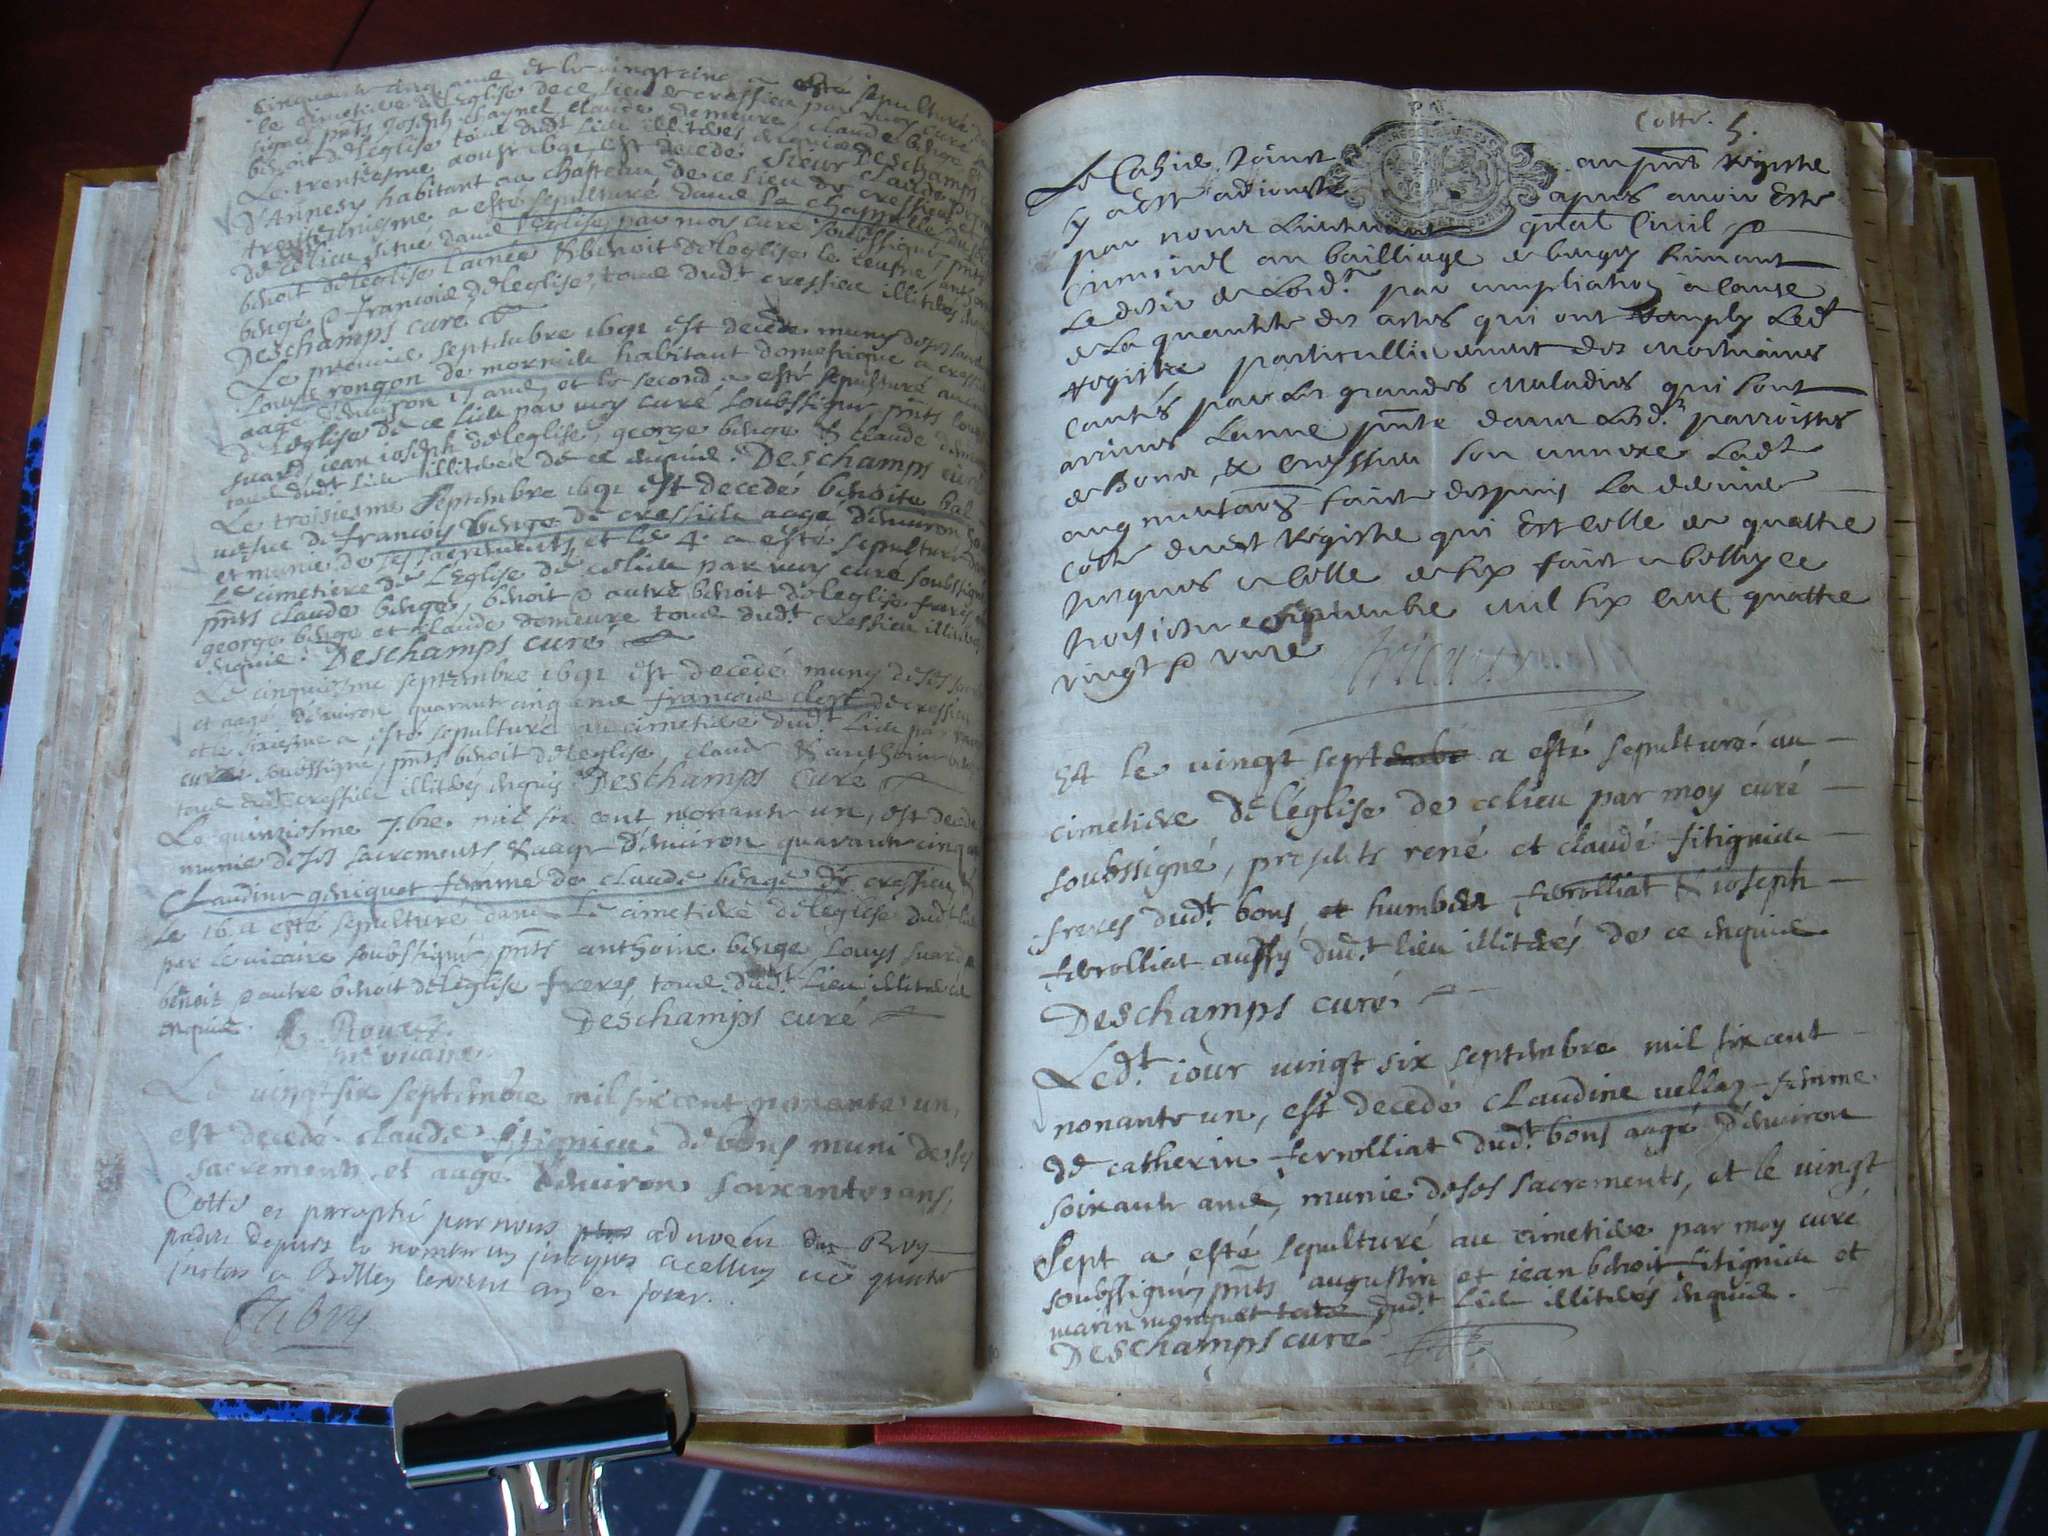 cinquante cinq ans et le vingt cinq a esté sepulturé
le cimetiere de l'Eglise de ce lieu de cressieu par moy curé
pnts Joseph claude demeure, claude berge
benoit deleglise tous dudt lieu illiteres enquis Deschamps
Le trentiesme aoust 1691 est decedé sieur claude
d'Annesy habitant au chasteau de ce lieu de cressieu et
a esté sepulturé dans la chappelle du
de ce lieu situé dans l'Eglise par moy curé soubssigné, pnts
benoit deleglise lainé & benoit deleglise le jeusne, anthoine
berge & francois deleglise, tous dudt cressieu illiteres
Deschamps curé
Le premier septembre 1691 est decedé muny de ses
Louys rongon de habitant domestique a cressieu
aagé denviron 15 ans, et le second a esté sepulturé au
de leglise de ce lieu par moy curé soubssigné, pnts louys
suard jean joseph deleglise, george berge & claude
tous dudt lieu illiteres de ce enquis. Deschamps curé
Le troisiesme septembre 1691 est decedé benoite bal
vefve de francois berge de cressieu aagé denviron
et munie de ses sacrements, et le 4. a esté sepulturé dans
Le cimetiere de L'Eglise de ce lieu par moy curé soubssigné
pnts claude berge, benoit & autre benoit deleglise freres,
george berge et claude demeure tous dudt cressieu illiteres
enquis. Deschamps curé
Le cinquiesme septembre 1691 est decedé muny de ses
et aagé denviron quarante cinq ans francois clert de cressieu
et le sixiesme a esté sepulturé au cimetiere dudt Lieu par moy
curé soubssigné, pnts benoit deleglise, claude & anthoine
tous dudt cressieu illiteres enquis Deschamps curé
Le quinziesme 7.bre mil six cent nonante un, est decedé
munie de ses sacrements & aagé denviron quarante cinq
Claudine geniquet femme de claude berge de cressieu &
le 16 a esté sepulturé dans Le cimetiere de leglise dudt lieu
par le vicaire soubssigné pnts anthoine berge, Louys suard
benoit & autre benoit deleglise freres tous dudt Lieu illiteres
enquis. Deschamps curé
vicaire
Le vingt six septembre mil six cent nonante un,
est decedé claude fitignieu de bons muni de ses
sacrements et aagé denviron soixante ans,
Cotté et paraphé par nous advocat du Roy
depuis le nombre un jusques a celluy de quatre
a Belley les an et jour.
Cotte. 5.
Le Cahier joinct au pnt Registre
y a esté adjousté apres avoir Esté
par nous Lieutenant gnal Civil &
Criminel au bailliage de bugey suivant
Le desir de Lord. par ampliation a cause
de La quantité des actes qui ont remply Led
Registre particullierement des mortuaires
causés par les grandes Maladies qui sont
arrivées Lannee pnte dans Lesd. parroisses
de Bons, & cressieu son annexe Ladt
augmentaon faicte despuis La derniere
cotte dudt Registre qui est celle de quattre
jusques a celle de six faict a belley ce
troisiesme septembre mil six cent quattre
vingt & unze
Et le vingt sept a esté sepulturé au
cimetiere de l'église de ce lieu par moy curé
soubssigné, presents rené et claude fitignieu
freres dudt bons, et humbert ferrolliat & joseph
ferrolliat aussy dudt lieu illiterés de ce enquis.
Deschamps curé
Ledt jour vingt six septembre mil six cent
nonante un, est decedé claudine vellaz femme
de catherin ferrolliat dudt bons aagé denviron
soixante ans, munie de ses sacrements, et le vingt
sept a esté sepulturé au cimetiere par moy curé
soubssigné, pnts augustin et jean benoit fitignieu et
marin monquet tous dudt Lieu illiterés enquis.
Deschamps curé